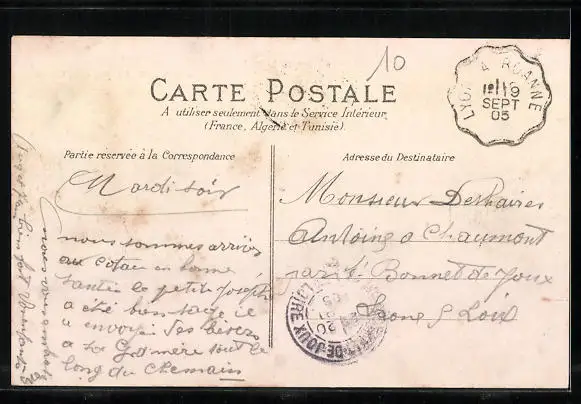 10
CARTE POSTALE
A utiliser seulement dans le Service Intérieur
(France, Algérie et Tunisie).
LYON A ROANNE
19
SEPT
05
Partie réservée à la Correspondance
Adresse du Destinataire
Mardi soir
nous sommes arrivés
au coteau en bonne
santée le petit Joseph
a été bien sage il
a envoyé ses
a sa G mère tout le
long du chemain
nous vous
bien fort
Monsieur Deshaires
Antoine a Chaumont
par St Bonnet de Joux
Saone & Loire
DE-JOUX
LOIRE
20
05